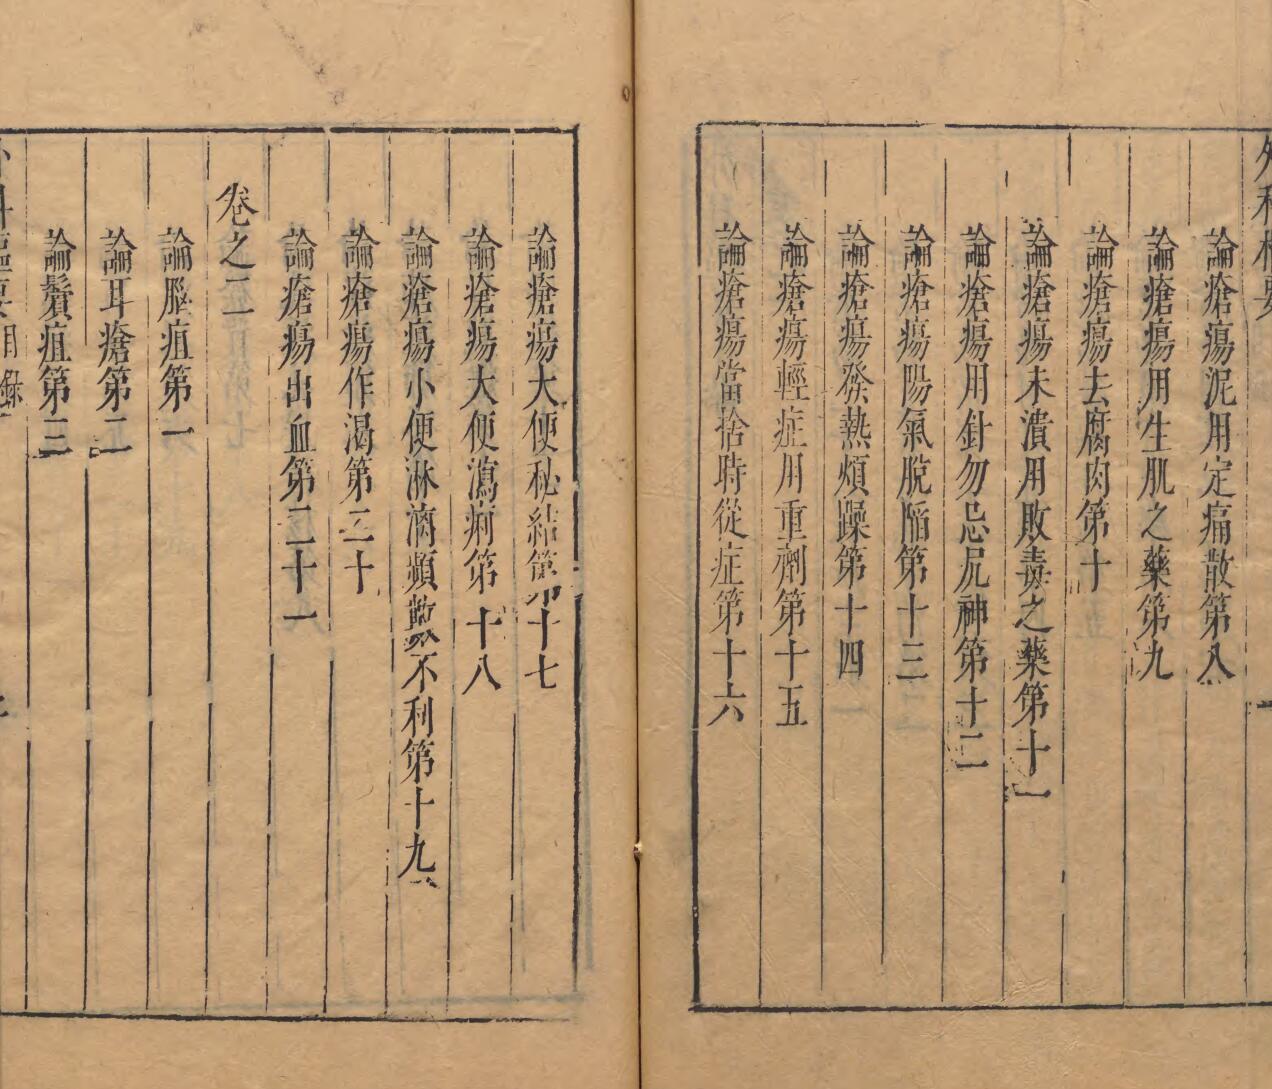 外科樞要
論瘡瘍泥用定痛散第八
論瘡瘍用生肌之藥第九
論瘡瘍去腐肉第十
論瘡瘍未潰用敗毒之藥第十一
論瘡瘍用針勿忌尻神第十二
論瘡瘍陽氣脫陷第十三
論瘡瘍發熱煩躁第十四
論瘡瘍輕症用重劑第十五
論瘡瘍當捨時從症第十六
論瘡瘍大便秘結第十七
論瘡瘍大便瀉痢第十八
論瘡瘍小便淋滴頻數不利第十九
論瘡瘍作渴第二十
論瘡瘍出血第二十一
卷之二
論腦疽第一
論耳瘡第二
論鬢疽第三
外科樞要目錄